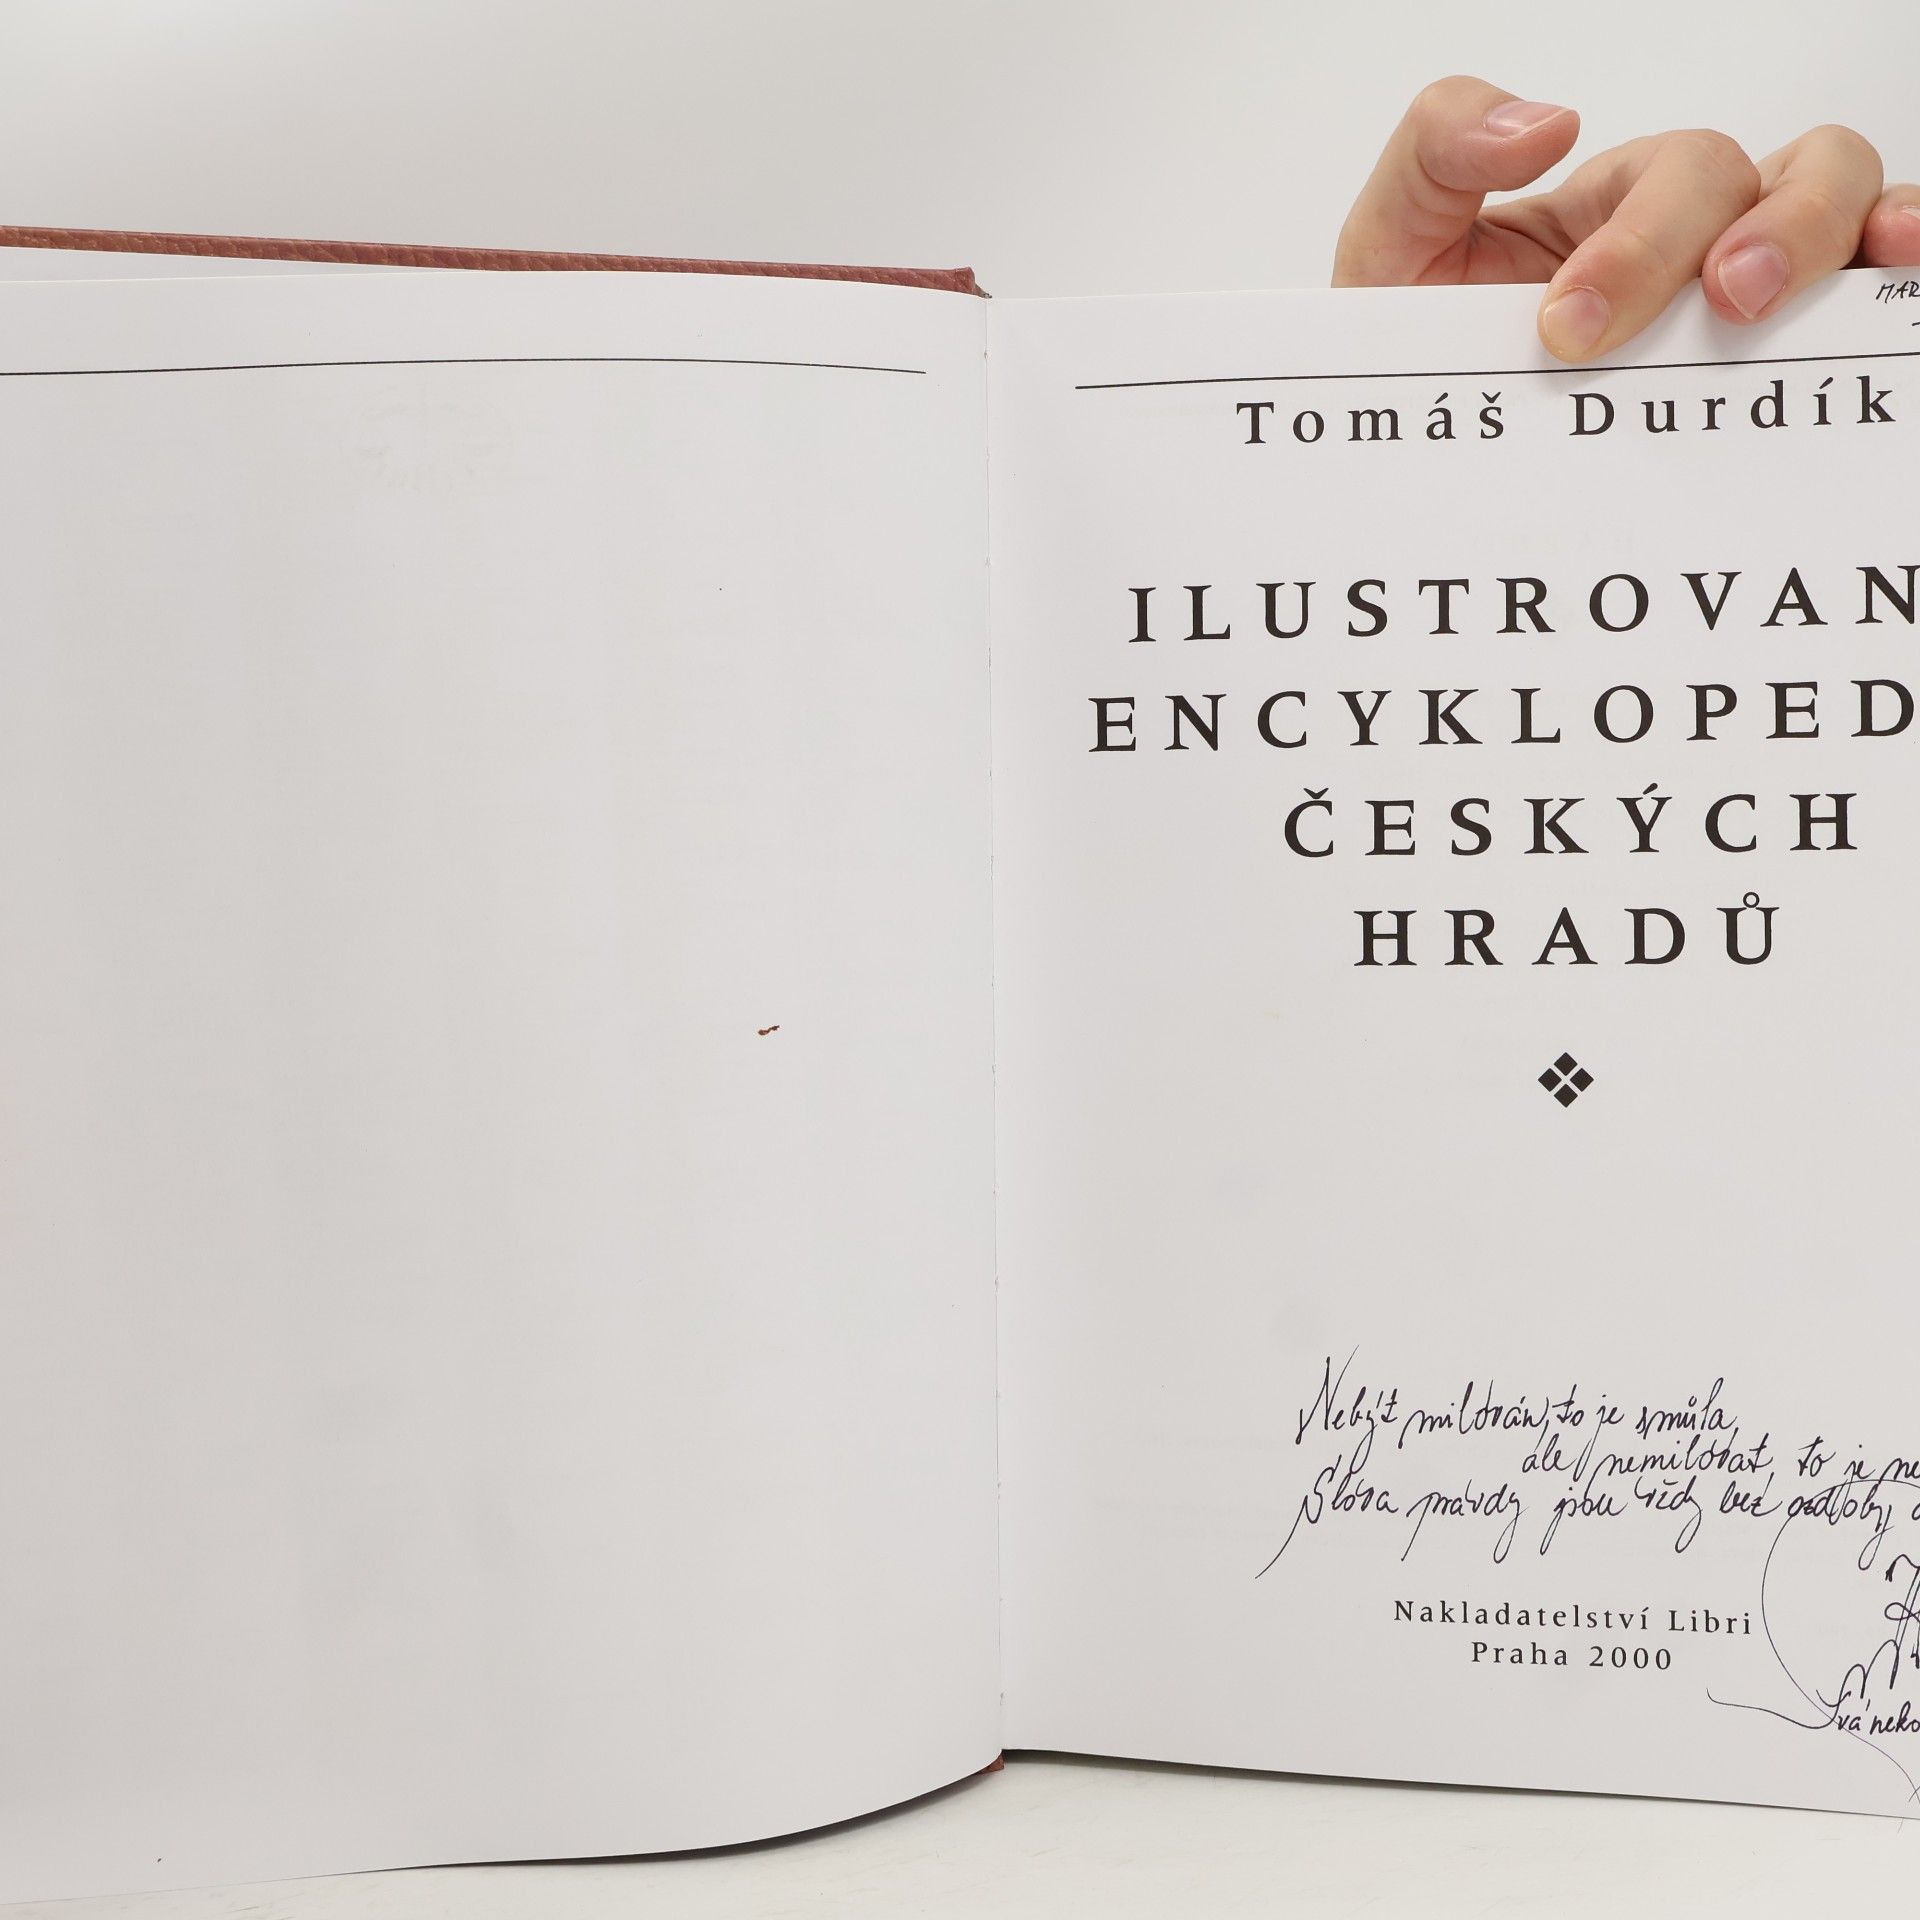 MAR
Tomáš Durdík
ILUSTROVAN
ENCYKLOPED
ČESKÝCH
HRADŮ
Nebýt milován, to je smůla,
ale nemilovat, to je ne
Slova pravdy jsou vždy bez ozdoby
Nakladatelství Libri
Praha 2000